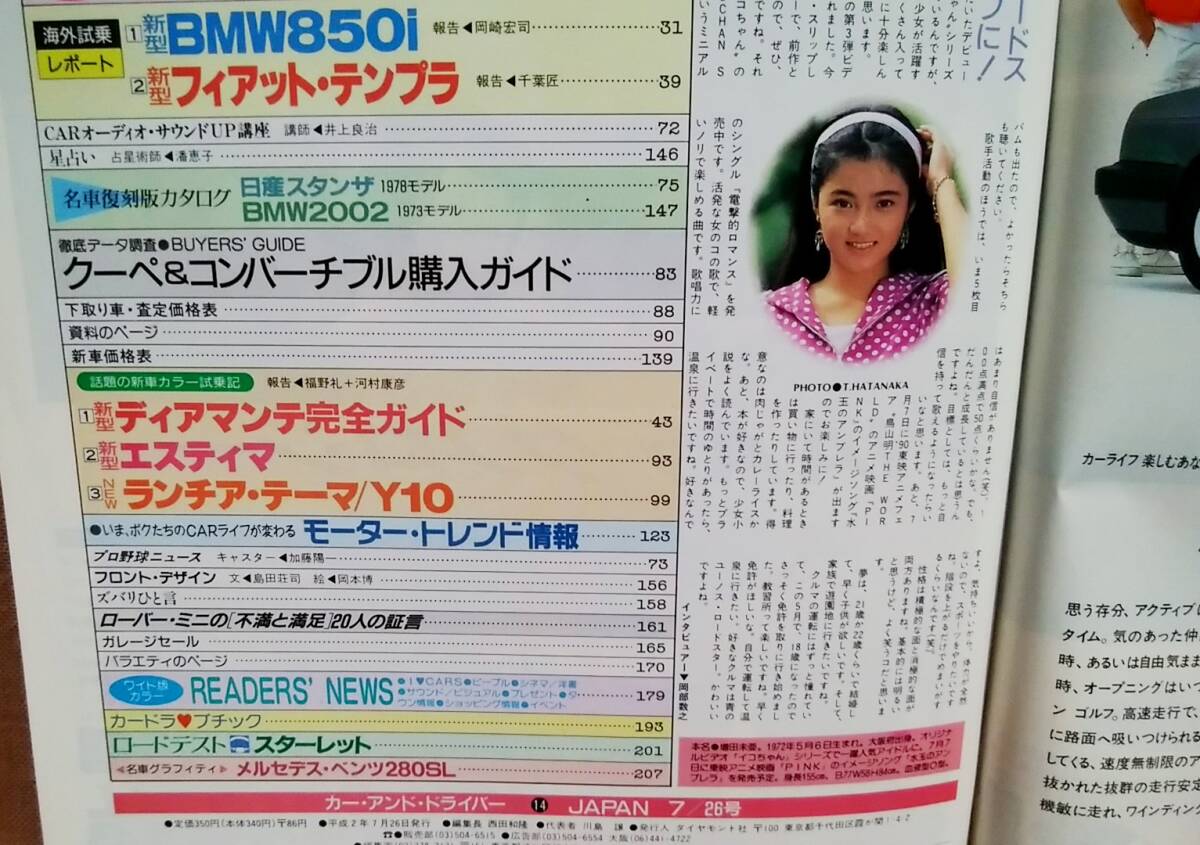 海外試乗
レポート
1 新型 BMW850i 報告◀岡崎宏司 31
2 新型 フィアット・テンプラ 報告◀千葉匠 39
CARオーディオ・サウンドUP講座 講師◀井上良治 72
星占い 占星術師◀潘恵子 146
名車復刻版カタログ
日産スタンザ 1978モデル 75
BMW2002 1973モデル 147
徹底データ調査●BUYERS' GUIDE
クーペ&コンバーチブル購入ガイド 83
下取り車・査定価格表 88
資料のページ 90
新車価格表 139
話題の新車カラー試乗記 報告◀福野礼+河村康彦
1 新型 ディアマンテ完全ガイド 43
2 新型 エスティマ 93
3 NEW ランチア・テーマ/Y10 99
●いま、ボクたちのCARライフが変わる モーター・トレンド情報 123
プロ野球ニュース キャスター◀加藤陽一 73
フロント・デザイン 文◀島田荘司 絵◀岡本博 156
ズバリひと言 158
ローバー・ミニの[不満と満足]20人の証言 161
ガレージセール 165
バラエティのページ 170
ワイド版カラー READERS' NEWS
●I♥CARS●ピープル●シネマ/洋書
●サウンド/ビジュアル●プレゼント●タ
ウン情報●ショッピング情報●イベント 179
カードラ♥プチック 193
ロードテスト スターレット 201
◀名車グラフィティ▶ メルセデス・ベンツ280SL 207
カー・アンド・ドライバー 14 JAPAN 7/26号
●定価350円(本体340円)〒86円 ●平成2年7月26日発行 ●編集長 西田和隆 ●代表者 川島 譲 ●発行人 ダイヤモンド社 〒100 東京都千代田区霞が関1-4-2
☎●販売部(03)504-6515 ●広告部(03)504-6554 大阪(06)441-4722
ードス
に!
いたデビュー
ちゃんシリーズ
いるんですが、
少女が活躍す
くさん入って
に十分楽しん
思います。
の第3弾ビデ
れました。今
・スリップし
ーで、前作と
ですね。それ
ので、ぜひ、
コちゃん"の
CHAN S
いうミニアル
バムも出たので、よかったらそちら
も聴いてください。
歌手活動のほうでは、いま5枚目
のシングル『電撃的ロマンス』を発
売中です。活発な女のコの歌で、軽
いノリで楽しめる曲です。歌唱力に
PHOTO●T.HATANAKA
はあまり自信がありません(笑)。1
00点満点で50点くらいかな。でも、
だんだんと成長しているとは思うん
ですよね。目標としては、もっと自
信を持って歌えるようになったらい
いなと思います。あと、7
月7日に'90東映アニメフェ
ア"鳥山明THE WOR
LD"のアニメ映画『PI
NK』のイメージソング『水
玉のアンブレラ』が出ます
のでお楽しみに!
家にいて時間があるとき
は買い物に行ったり、料理
を作ったりしています。得
意なのは肉じゃがとカレーライスか
な。あと、本が好きなので、少女小
説をよく読んでいます。もっとプラ
イベートで時間のゆとりがあったら、
温泉に行きたいですね。好きなんで
すよ、気持ちいいから。体力が全然
ないので、スポーツをやりたいです
ね。階段を上がるだけでめまいがす
るくらいなんです(笑)。
性格は積極的な面と消極的な面が
両方あります。基本的には明るい
と思うけど、よく笑うコだと思いま
す。
夢は、21歳か22歳くらいで結婚し
て、早く子供が欲しいです。そして、
家族で遊園地に行きたいですね。
クルマの運転にはずっと憧れてい
て、この5月で、18歳になったので
さっそく免許を取りに行き始めまし
た。教習所って楽しいですね。早く
免許がほしいな。自分で運転して温
泉に行きたい。好きなクルマは青の
ユーノス・ロードスター。かわいい
ですよね。
インタビュアー▼岡部敬之
本名●増田未亜。1972年5月6日生まれ。大阪府出身。オリジナ
ルビデオ「イコちゃん」シリーズで一躍人気アイドルに。7月7
日に東映アニメ映画「PINK」のイメージソング「水玉のアン
ブレラ」を発売予定。身長155cm、B77W58H84cm。血液型O型。
カーライフ 楽しむあな
思う存分、アクティブに
タイム。気のあった仲
時、あるいは自由気まま
時、オープニングはいつ
ン ゴルフ。高速走行で、
に路面へ吸いつけられる
してくる、速度無制限のア
抜かれた抜群の走行安定
機敏に走れ、ワインディン